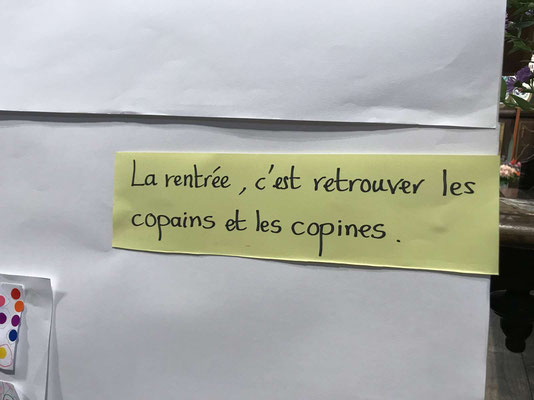 La rentrée, c'est retrouver les
copains et les copines.